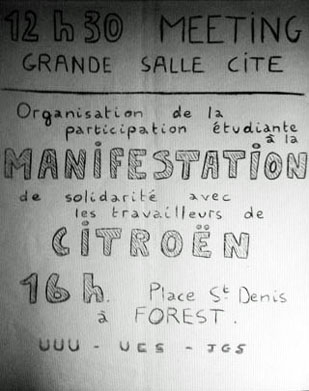 12 h 30 MEETING
GRANDE SALLE CiTE
Organisation de la
participation étudiante
à la
MANiFESTATiON
de solidarité avec
les travailleurs de
CiTROËN
16 h. Place St Denis
à FOREST.
UUU - UCS - JGS